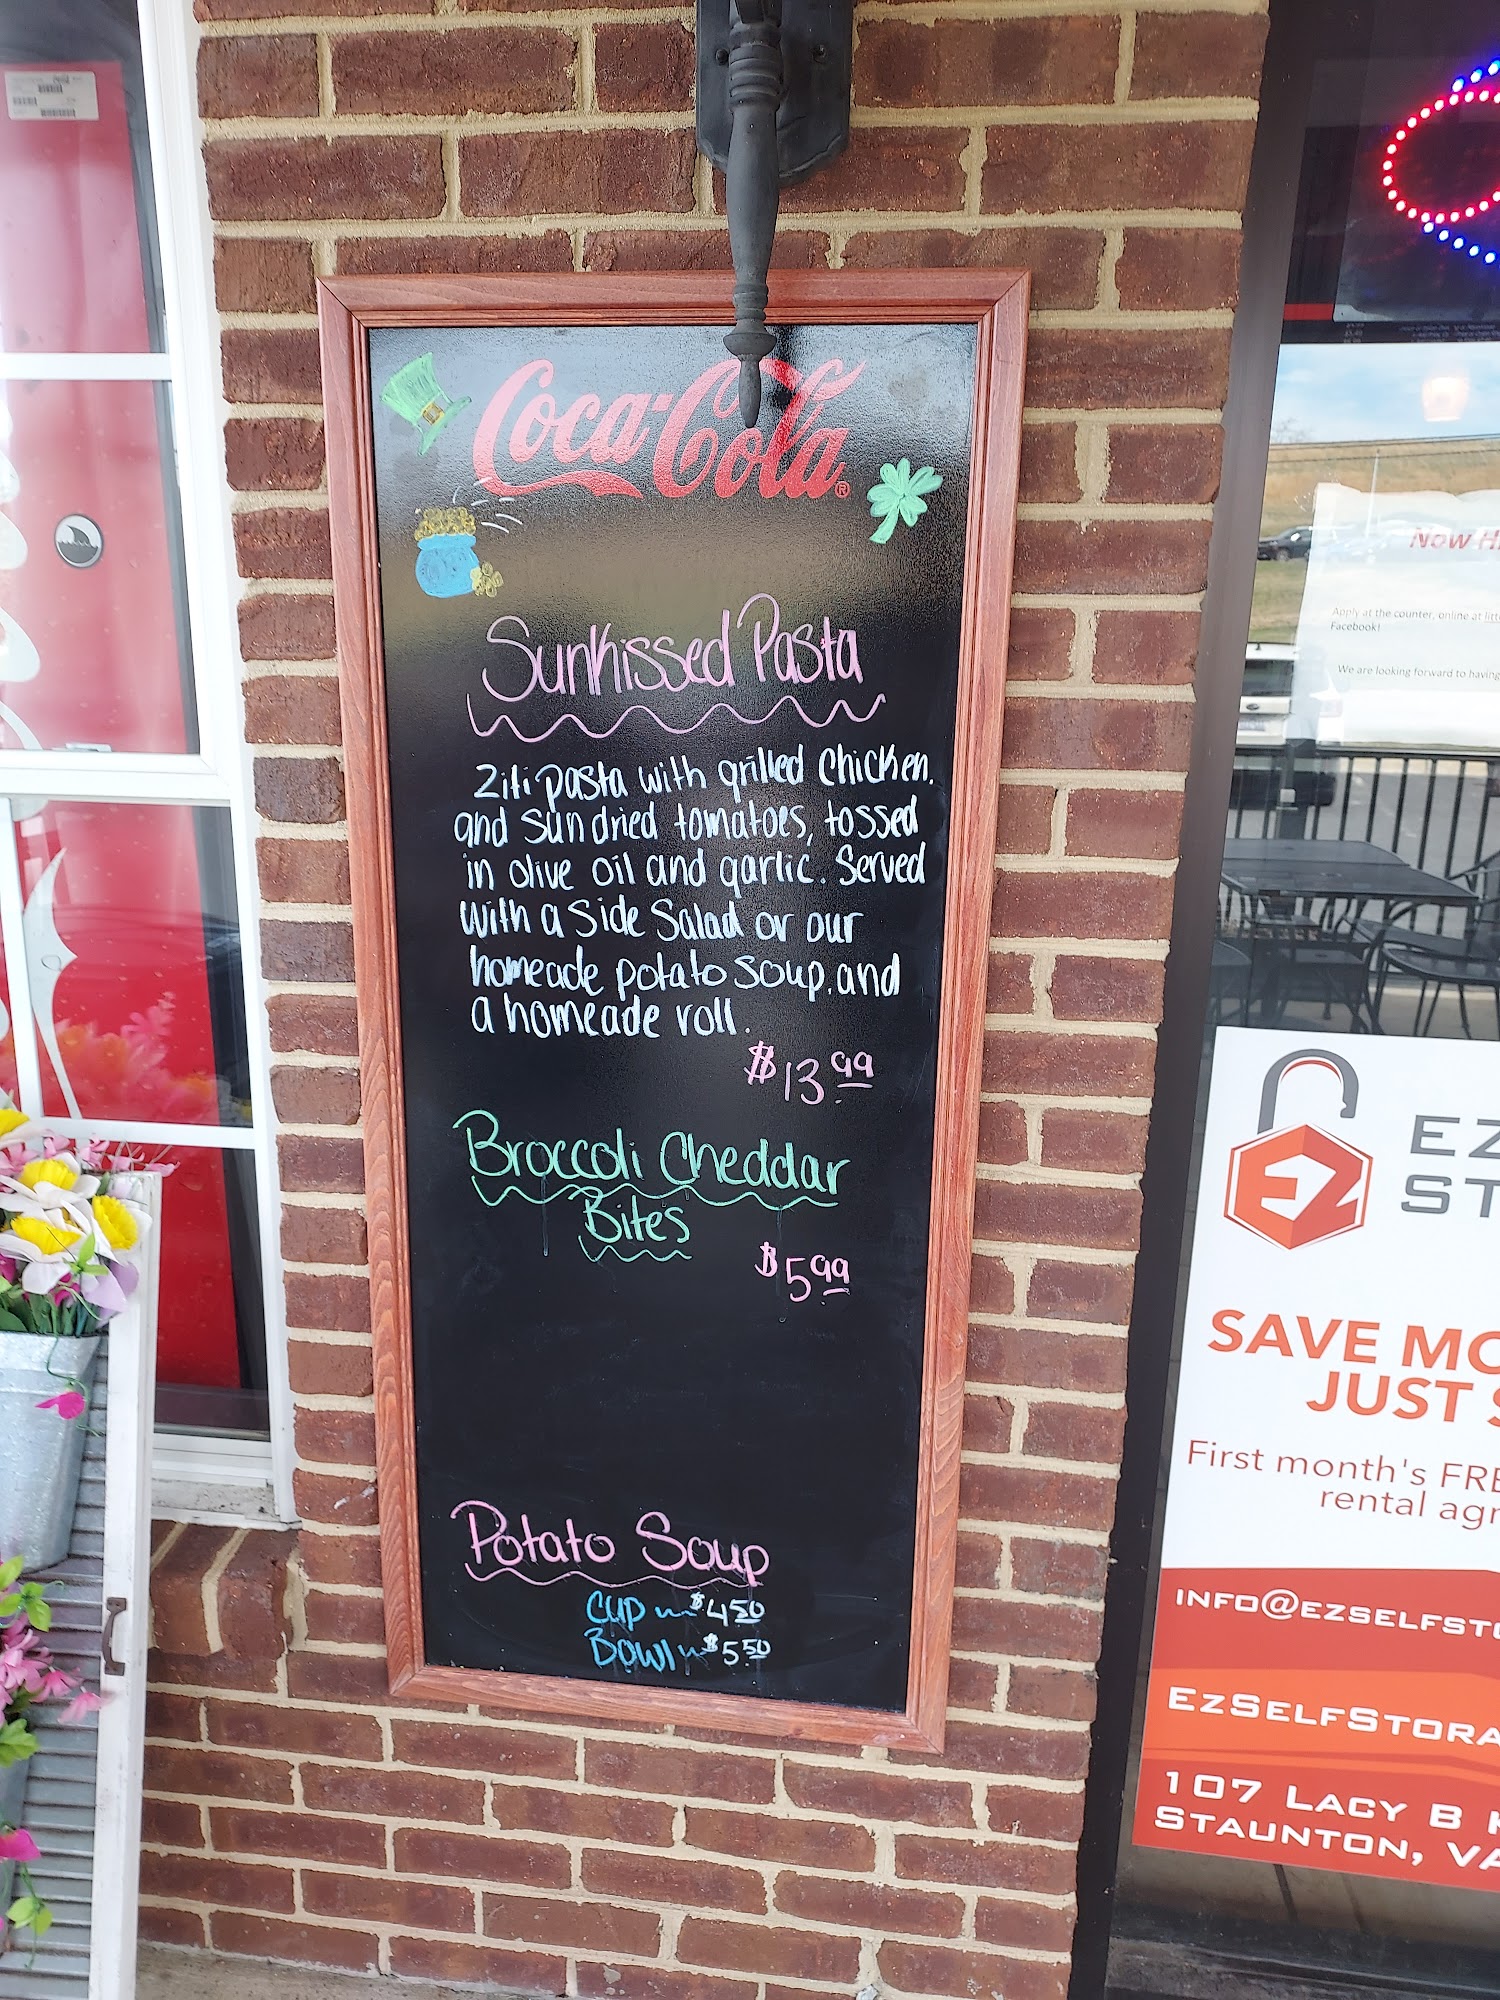 Coca-Cola®
SunKissed Pasta
Ziti pasta with grilled chicken.
and sun dried tomatoes, tossed
in olive oil and garlic. Served
with a side salad or our
homeade potato soup, and
a homeade roll.
$13.99
Broccoli Cheddar
Bites
$5.99
Potato Soup
CUP $4.50
BOWl $5.50
Now H
Apply at the counter, online at litt
Facebook!
We are looking forward to having
EZ
EZ
ST
SAVE MO
JUST S
First month's FRE
rental agr
INFO@EZSELFSTO
EZSELFSTORA
107 LACY B K
STAUNTON, VA